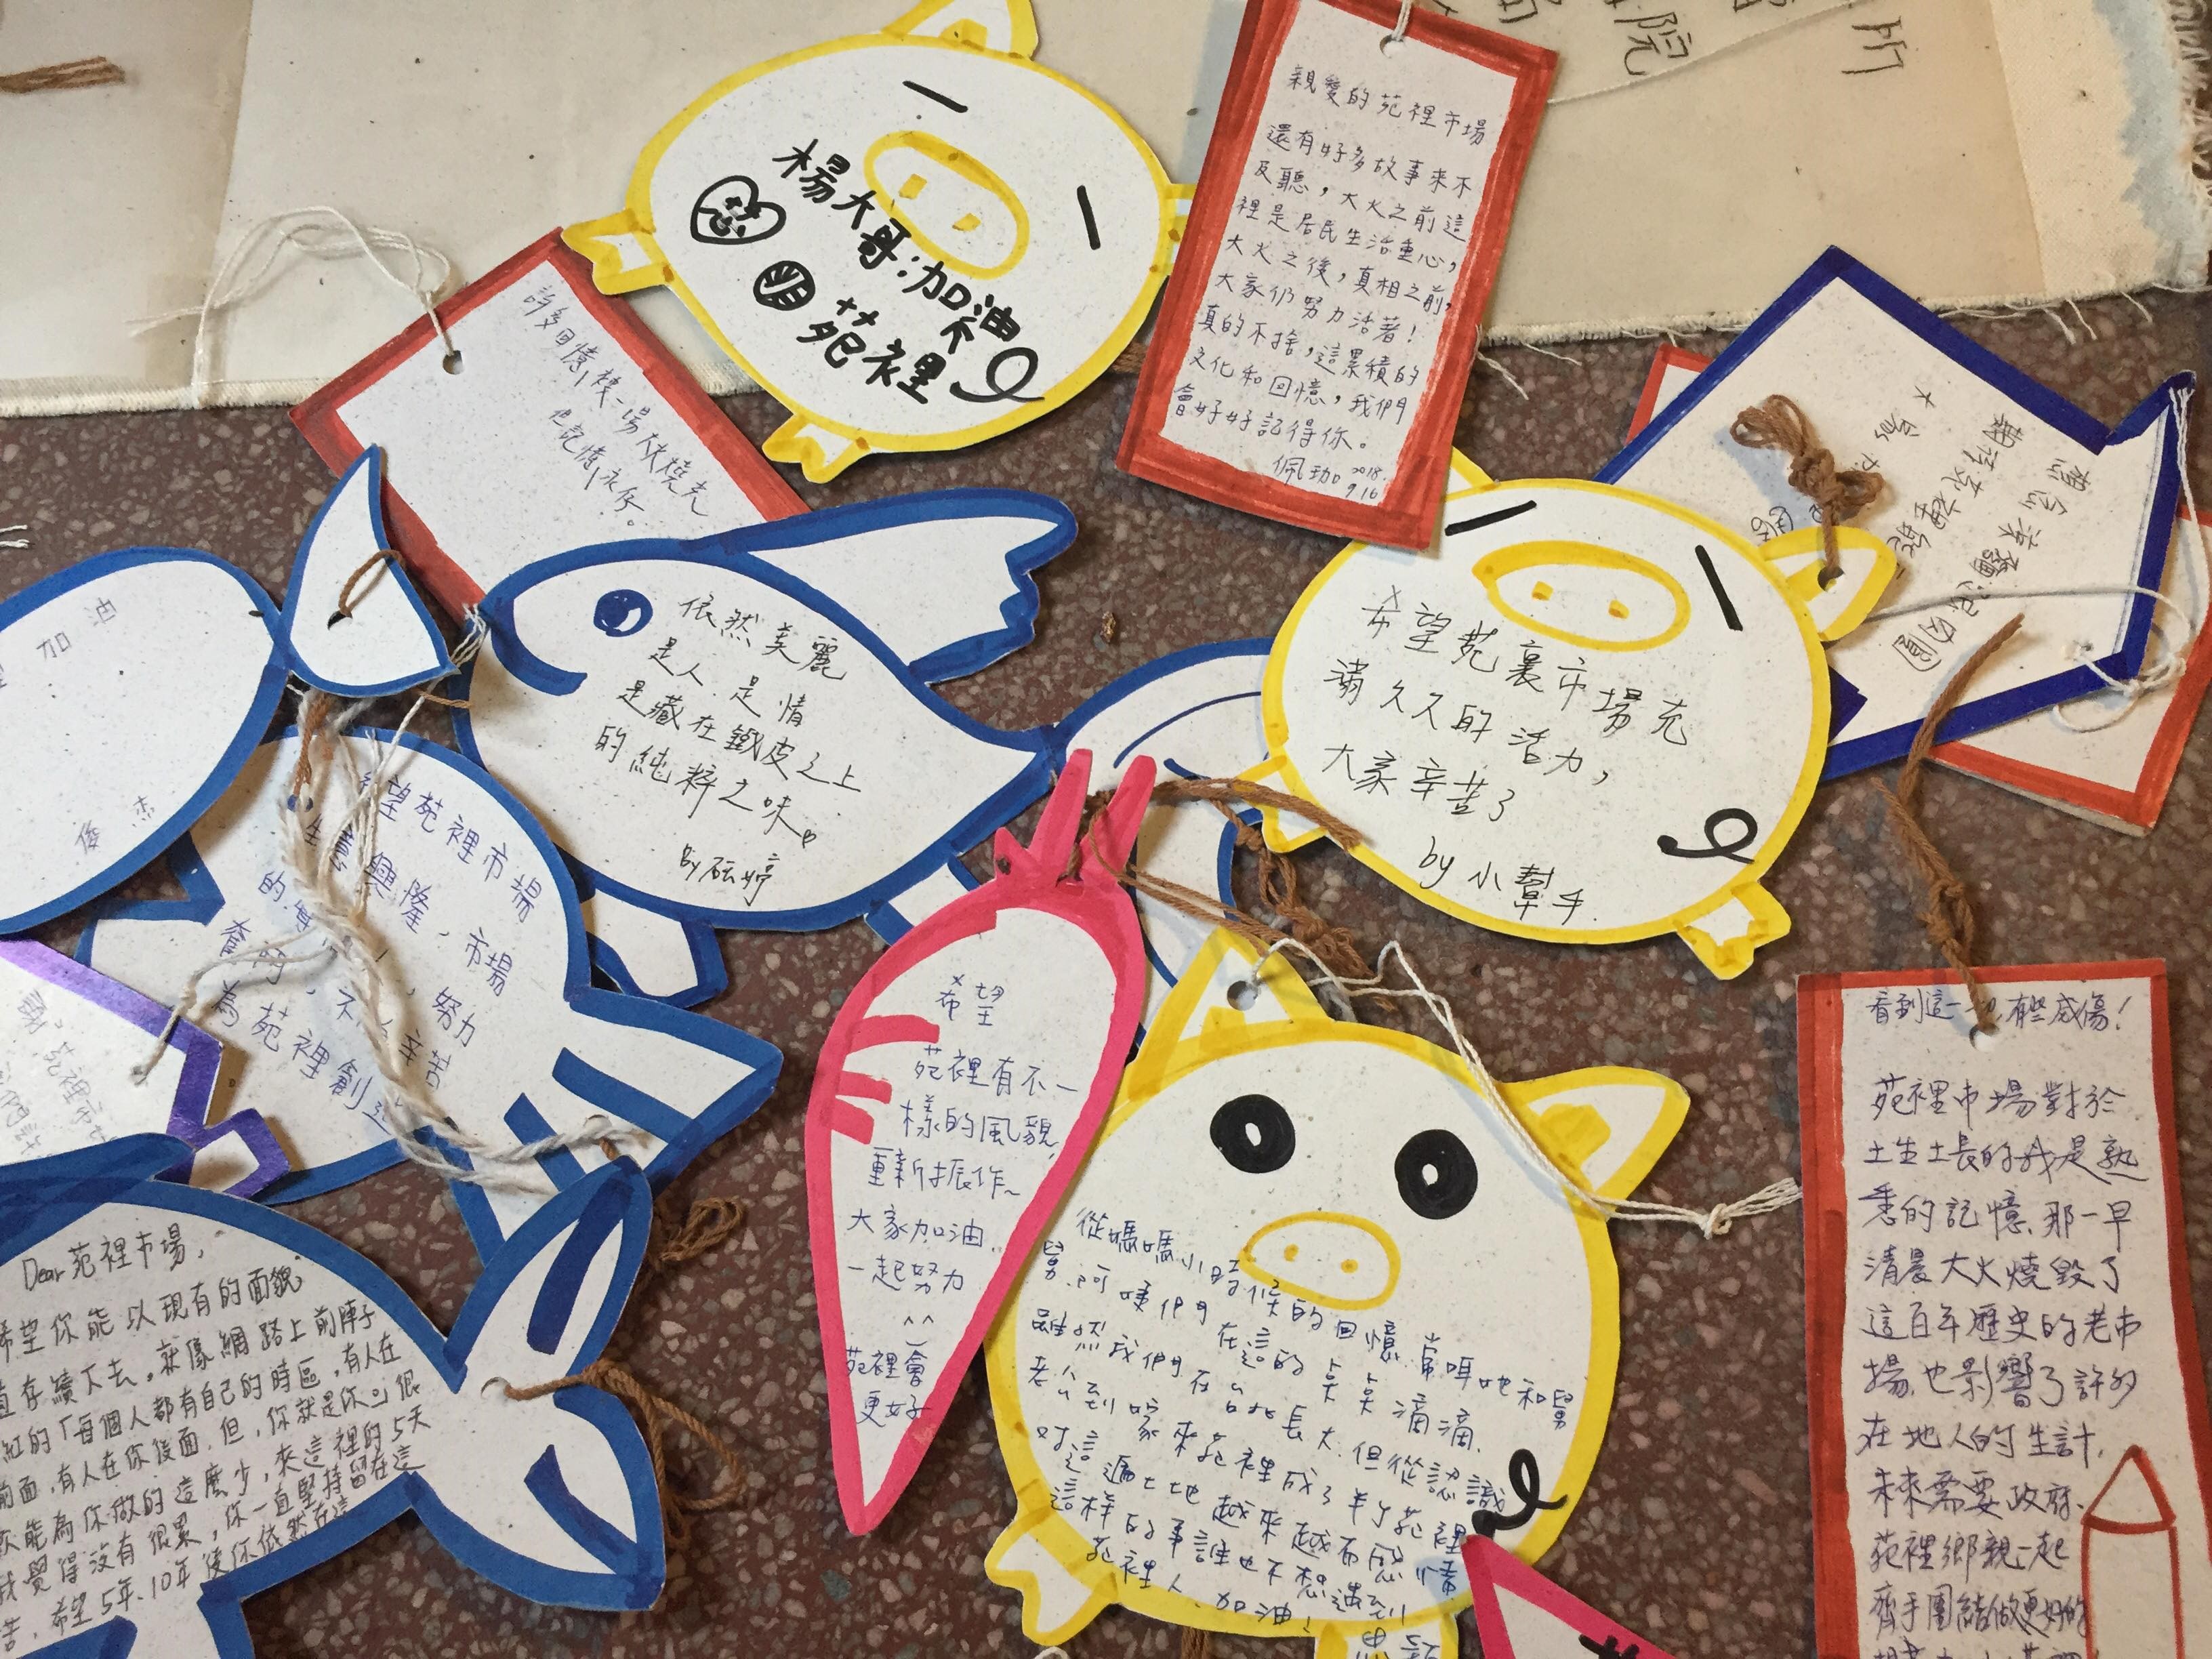 楊大哥:加油
苑裡
親愛的苑裡市場
還有好多故事來不
及聽，大火之前這
裡是居民生活重心，
大火之後，真相之前，
大家仍努力活著！
真的不捨，這累積的
文化和回憶，我們
會好好記得你。
佩珈 2018.
9.16
許多回憶被一場大火燒光
但記憶永存。
依然美麗
是人.是情
是藏在鐵皮之上
的純粹之味。
By 砡婷
希望苑裏市場充
滿久久的活力，
大家辛苦了
by 小幫手.
加油
俊杰
希望苑裡市場
生意興隆，市場
努力
奮鬥，不
辛苦
為苑裡創造
希望
苑裡有不一
樣的風貌，
重新振作~
大家加油.
一起努力
^^
苑裡會
更好
從媽媽小時候的回憶.常咡吔和舅
舅.阿咦們在這的點點滴滴.
雖然我們在台北長大.但從認識
老公到嫁來苑裡成了半个苑裡
對這遍土地越來越而
這样的事誰也不想遇到
苑裡人.加油！
看到這一切,有些感傷！
苑裡市場對於
土生土長的我是熟
悉的記憶,那一早
清晨大火燒毀了
這百年歷史的老市
場.也影響了許多
在地人的生計,
未來需要政府.
苑裡鄉親一起
齊手團結做更好的
Dear 苑裡市場，
希望你能以現有的面貌
直存續下去。就像網路上前陣子
紅的「每個人都有自己的時區，有人在
前面，有人在你後面.但，你就是你」很
歉能為你做的這麼少，來這裡的5天
我覺得沒有很累，你一直堅持留在這
苦，希望5年、10年後你依然在這
苑裡市場